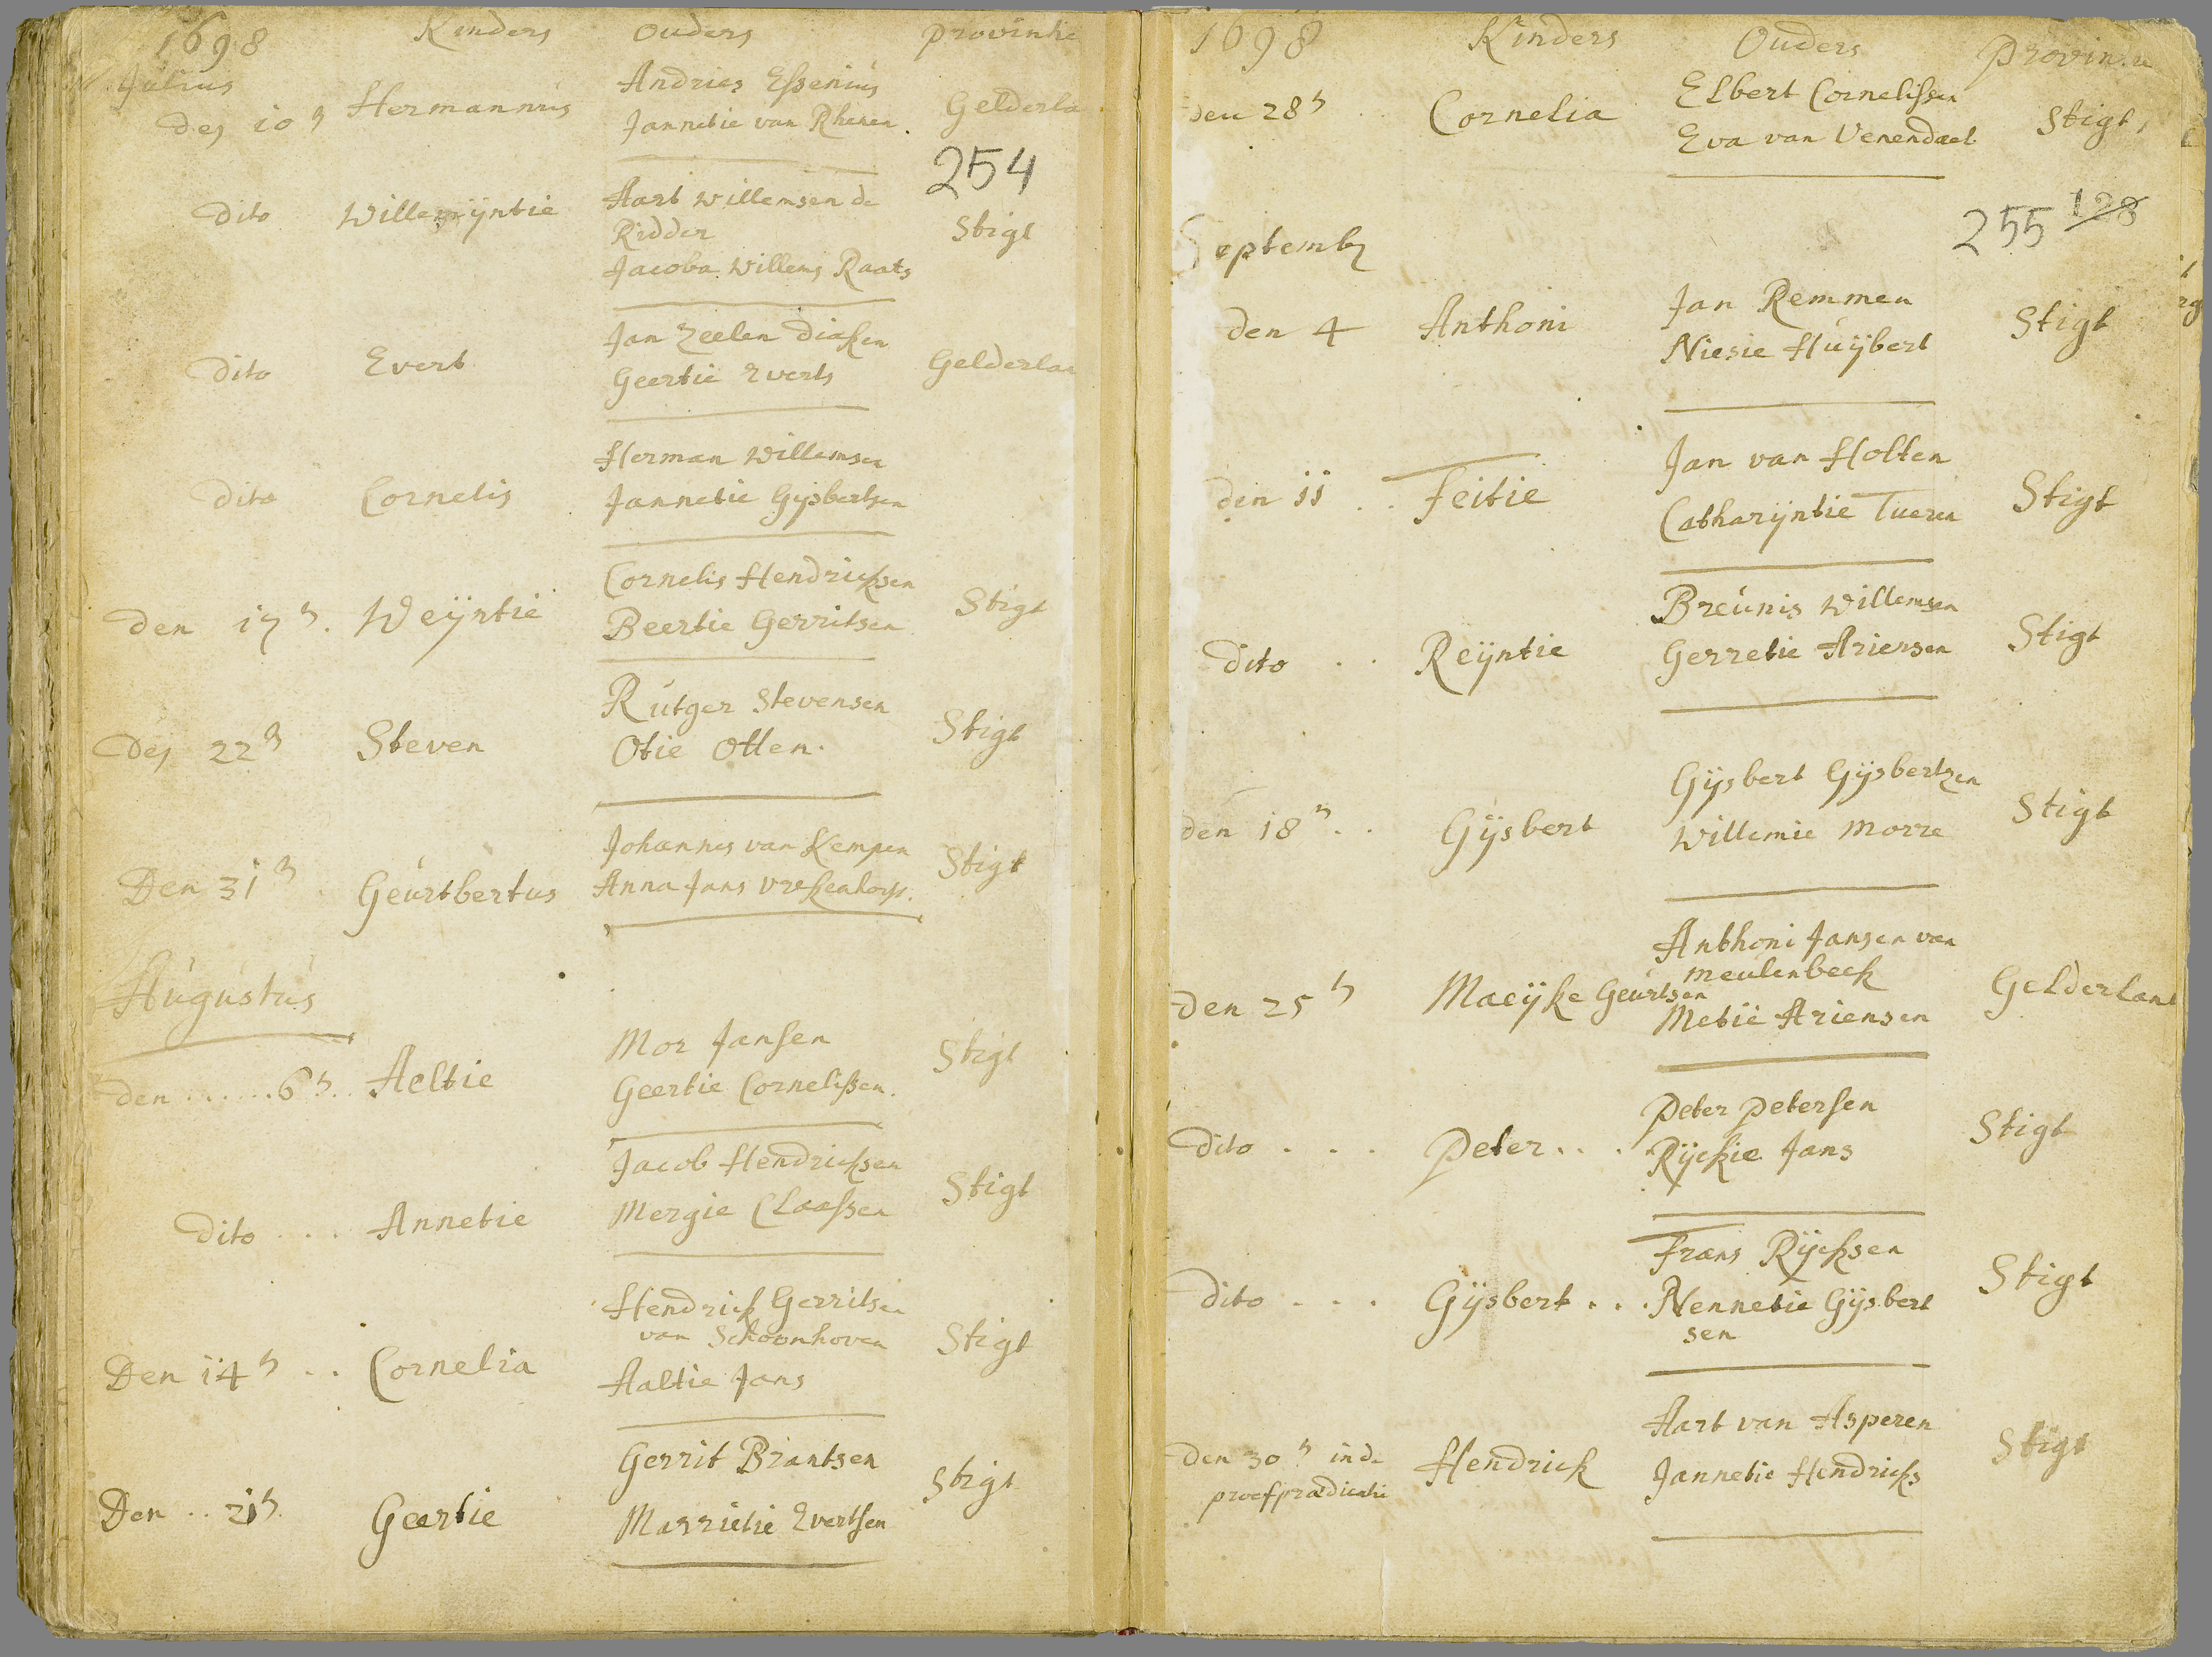 1698 Kinders Ouders provintie
Julius
Andries Essenius
des 10n Hermannus Gelderla
Jannetie van Rhenen.
254
Aart willemsen de
dito Willemyntie Ridder Stigt
Jacoba Willems Raats
Jan Zeelen Diaken
dito Evert Gelderlan
Geertie Everts
Herman Willemsen
dito Cornelis
Jannetie Gijsbertsen
Cornelis Hendricksen
den 17n. Weijntie Stigt
Beertie Gerritsen
Rutger Stevensen
des 22n Steven Stigt
Otie Otten.
Johannes van Kempen
Den 31n Geurtbertus Stigt
Anna Jans
Augustus
Mor Jansen
den ......6n.. Aeltie Stigt
Geertie Cornelissen.
Jacob Hendricksen
dito ... Annetie Stigt
Mergie Claassen
Hendrick Gerritsen
van Schoonhoven
Den 14n .. Cornelia Stigt
Aaltie Jans
Gerrit Brantsen
Den .. 21n. Geertie Stigt
Marrietie Evertsen
1698 Kinders Ouders
Elbert Cornelissen
den 28n . . Cornelia Stigt
Eva van Venendael
255 128
Septemb
Jan Remmen
den 4 Anthoni Stigt
Niesie Huijbert
Jan van Holten
den 11 . . Feitie Stigt
Catharijntie Tueren
Breunis Willemsen
dito . . Reijntie Stigt
Gerretie Ariensen
Gijsbert Gijsbertzen
den 18n . . Gijsbert Stigt
Willemie Morre
Anthoni Jansen van
meulenbeck
den 25n Maeijke Geurtsen Gelderlant
Metie Ariensen
Peter Petersen
dito . . . Peter . . . Stigt
Rijckie Jans
Frans Rijcksen
dito . . . Gijsbert . . . Stigt
Nennetie Gijsbert
sen
Aart van Asperen
den 30n in de Hendrick Stigt
proefprædicatie
Jannetie Hendricks